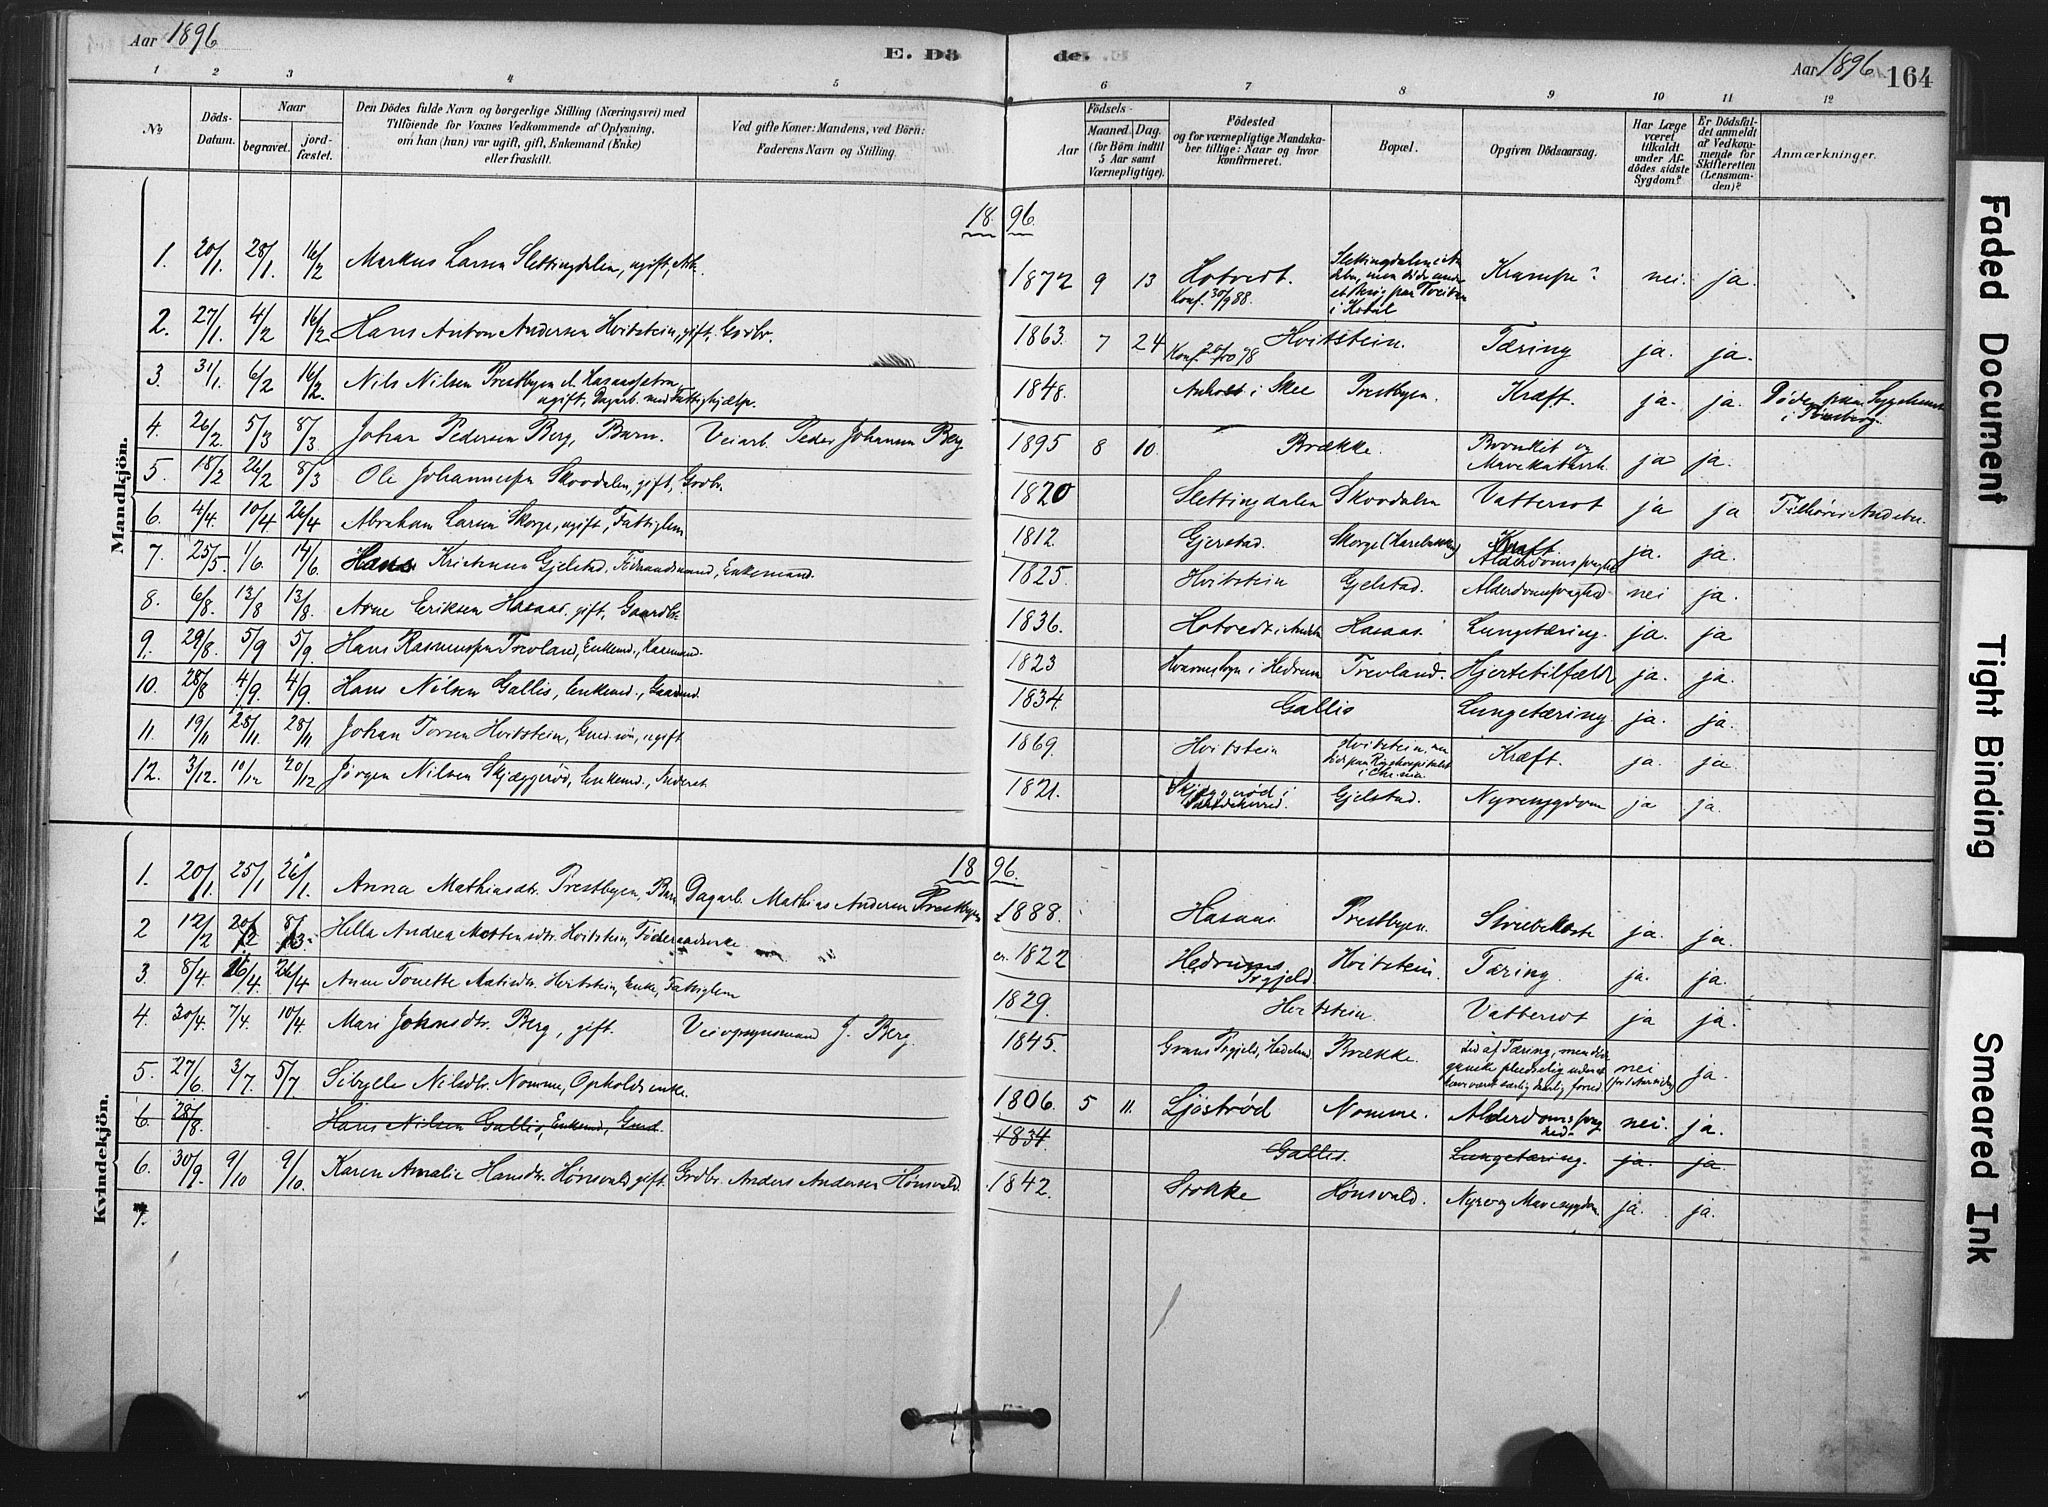 Aar 1896
E. Dö de.
Aar 1896 164
1 2 3 4 5 6 7 8 9 10 11 12
No
Döds-Datum.
Naar
begravet.
jord-fæstet.
Den Dödes fulde Navn og borgerlige Stilling (Næringsvei) med
Tilföiende for Voxnes Vedkommende af Oplysning,
om han (hun) var ugift, gift, Enkemand (Enke)
eller fraskilt.
Ved gifte Koner: Mandens, ved Börn:
Faderens Navn og Stilling.
Födsels-
Aar
Maaned. Dag.
(for Börn indtil
5 Aar samt
Værnepligtige).
Födested
og for værnepligtige Mandska-
ber tillige: Naar og hvor
konfirmeret.
Bopæl.
Opgiven Dödsaarsag.
Har Læge
været
tilkaldt
under Af-
dödes sidste
Sygdom?
Er Dödsfal-
det anmeldt
af Vedkom-
mende for
Skifteretten
(Lensman-
den)?
Anmærkninger.
Mandkjön.
18 96
1. 20/1 28/1 16/2 Markus Larsen Slettingdalen, ugift, Arb. 1872 9 13 Hotvedt. Konf. 30/9 88. Krampe? nei. ja.
2. 27/1 4/2 16/2 Hans Anton Andersen Hvitstein, gift, Grdbr. 1863. 7 24 Hvitstein. Tæring ja. ja.
3. 31/1 6/2 16/2 Nils Nilsen Prestbyen
ugift, Dagarb. med Fattighjælp. 1848. i Skee Prestbyen. Kræft. ja. ja.
4. 26/2 5/3 8/3 Johan Pedersen Berg, Barn. Veiarb. Peder Johansen Berg 1895 8 10. Brække. Bronkit og
Mavekatarrh. ja ja.
5. 18/2 26/2 8/3 Ole Johannesen Skovdalen, gift, Grdbr. 1820 Slettingdalen Skovdalen Vattersot ja ja
6. 4/4 10/4 26/4 Abraham Larsen Skorge, ugift, Fattiglem 1812. Gjerstad. Alderdomssvaghed ja. ja.
7. 25/5. 1/6. 14/6 Hans Kristensen Gjelstad, Föderaadsmand, Enkemand. 1825. Hvitstein Gjelstad. Alderdomssvaghed nei ja.
8. 6/8. 13/8 13/8. Arne Eriksen Hasaas, gift, Gaardbr. 1836. Hotvedt i Hasaas. Lungetæring. ja. ja
9. 29/8. 5/9 5/9. Hans Rasmussen Trevland, Enkemd., 1823 i Hedrum Trevland. Hjertetilfælde ja. ja.
10. 28/8 4/9. 4/9. Hans Nilsen Gallis, Enkemd., Gaardmd. 1834 Gallis Lungetæring. ja. ja.
11. 19/11 28/11. 28/11 Johan Torsen Hvitstein, Grdm. sön, ugift. 1869. Hvitstein Hvitstein, men
död paa Rigshospitalet
i Chr.nia Kræft. ja. ja.
12. 3/12. 10/12 20/12 Jörgen Nilsen Skjæggeröd, Enkemd., Inderst. 1821. Skjæggeröd i
Sandeherred. Gjelstad. Nyresygdom ja ja.
Kvindekjön.
18 96.
1. 20/1. 25/1 26/1. Anna Mathiasdtr. Prestbyen, Barn Dagarb. Mathias Andersen Prestbyen 1888. Hasaas Prestbyen. Strubehoste ja. ja.
2 12/2 20/2 8/3. Helle Andrea Mortensdtr. Hvitstein, Föderaadsenke. cr. 1822 Hedrums
Prgjeld Hvitstein. Tæring. ja. ja.
3. 8/4. 16/4. 26/4 Anne Tonette Hvitstein, Enke, Fattiglem 1829. Hvitstein. Vattersot ja ja.
4. 30/4. 7/4. 10/4 Mari Johnsdtr. Berg, gift. Veiopsynsmand J. Berg. 1845. Grans Prgjeld, Hadeland. Brække. Led af Tæring, nei ja.
5. 27/6 3/7. 5/7 Sibylle Nilsdtr. Nomme, Opholdsenke. 1806. 5 11. Ljöströd Nomme. Alderdomssvag
hed. nei. ja.
6. 28/8. Hans Nilsen Gallis, Enkemd, Grmd. 1834. Gallis. Lungetæring. ja. ja.
6. 30/9. 9/10 9/10. Karen Amalie Hansdtr. Hönsvald, gift. Grdbr. Anders Andersen Hönsvald. 1842. Stokke Hönsvald. Nyre og Mavesygdom. ja. ja.
7.
Faded Document
Tight Binding
Smeared Ink